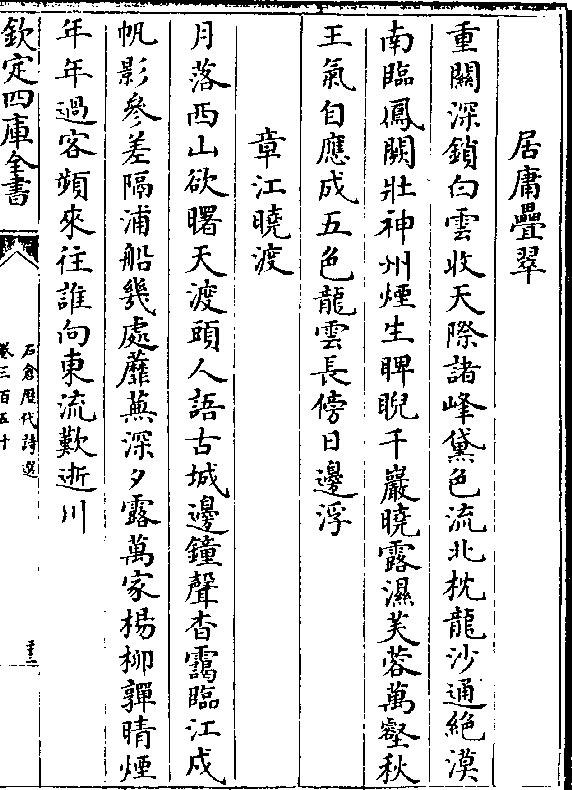 居庸疊翠
重關深鎖白雲收天際諸峰黛色流北枕龍沙通絶漠
南臨鳳闕壯神州煙生睥睨千巖曉露濕芙蓉萬壑秋
王氣自應成五色龍雲長傍日邊浮
章江曉渡
月落西山欲曙天渡頭人語古城邊鐘聲杳靄臨江戍
帆影參差隔浦船幾處蘼蕪深夕露萬家楊柳嚲晴煙
年年過客頻來往誰向東流歎逝川
欽定四庫全書
石倉歷代詩選
卷三百五十